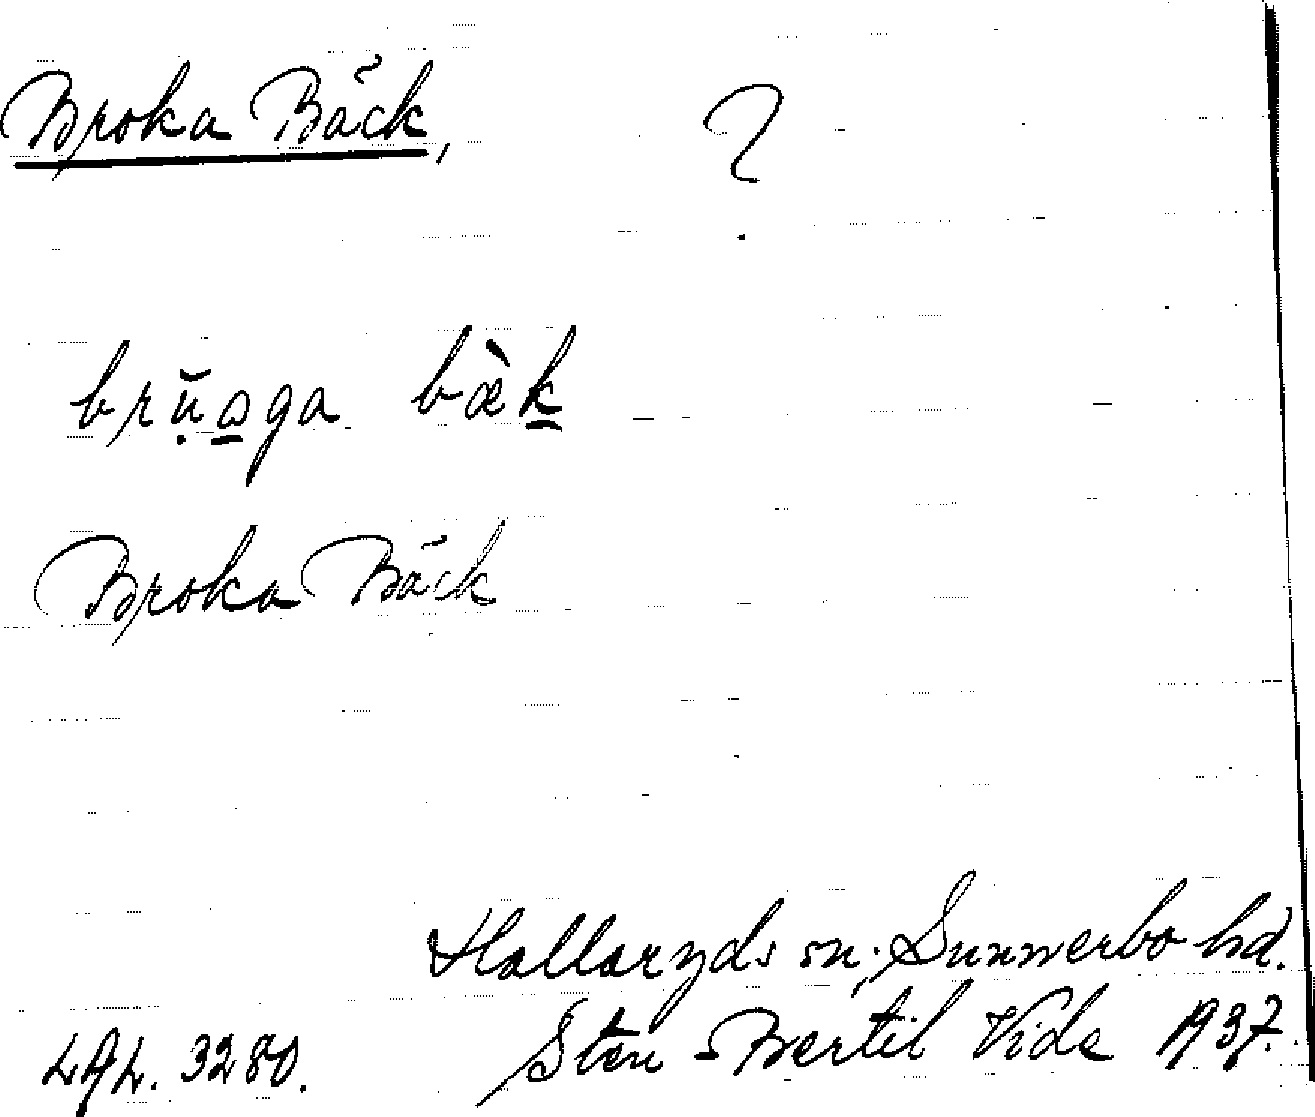 Broka Bäck, ?
brụ̆a̱ga bæ̀ḵ
Broka Bäck
Hallaryds sn; Sunnerbo hd.
LAL. 3280. Sten-Bertil Vide 1937.